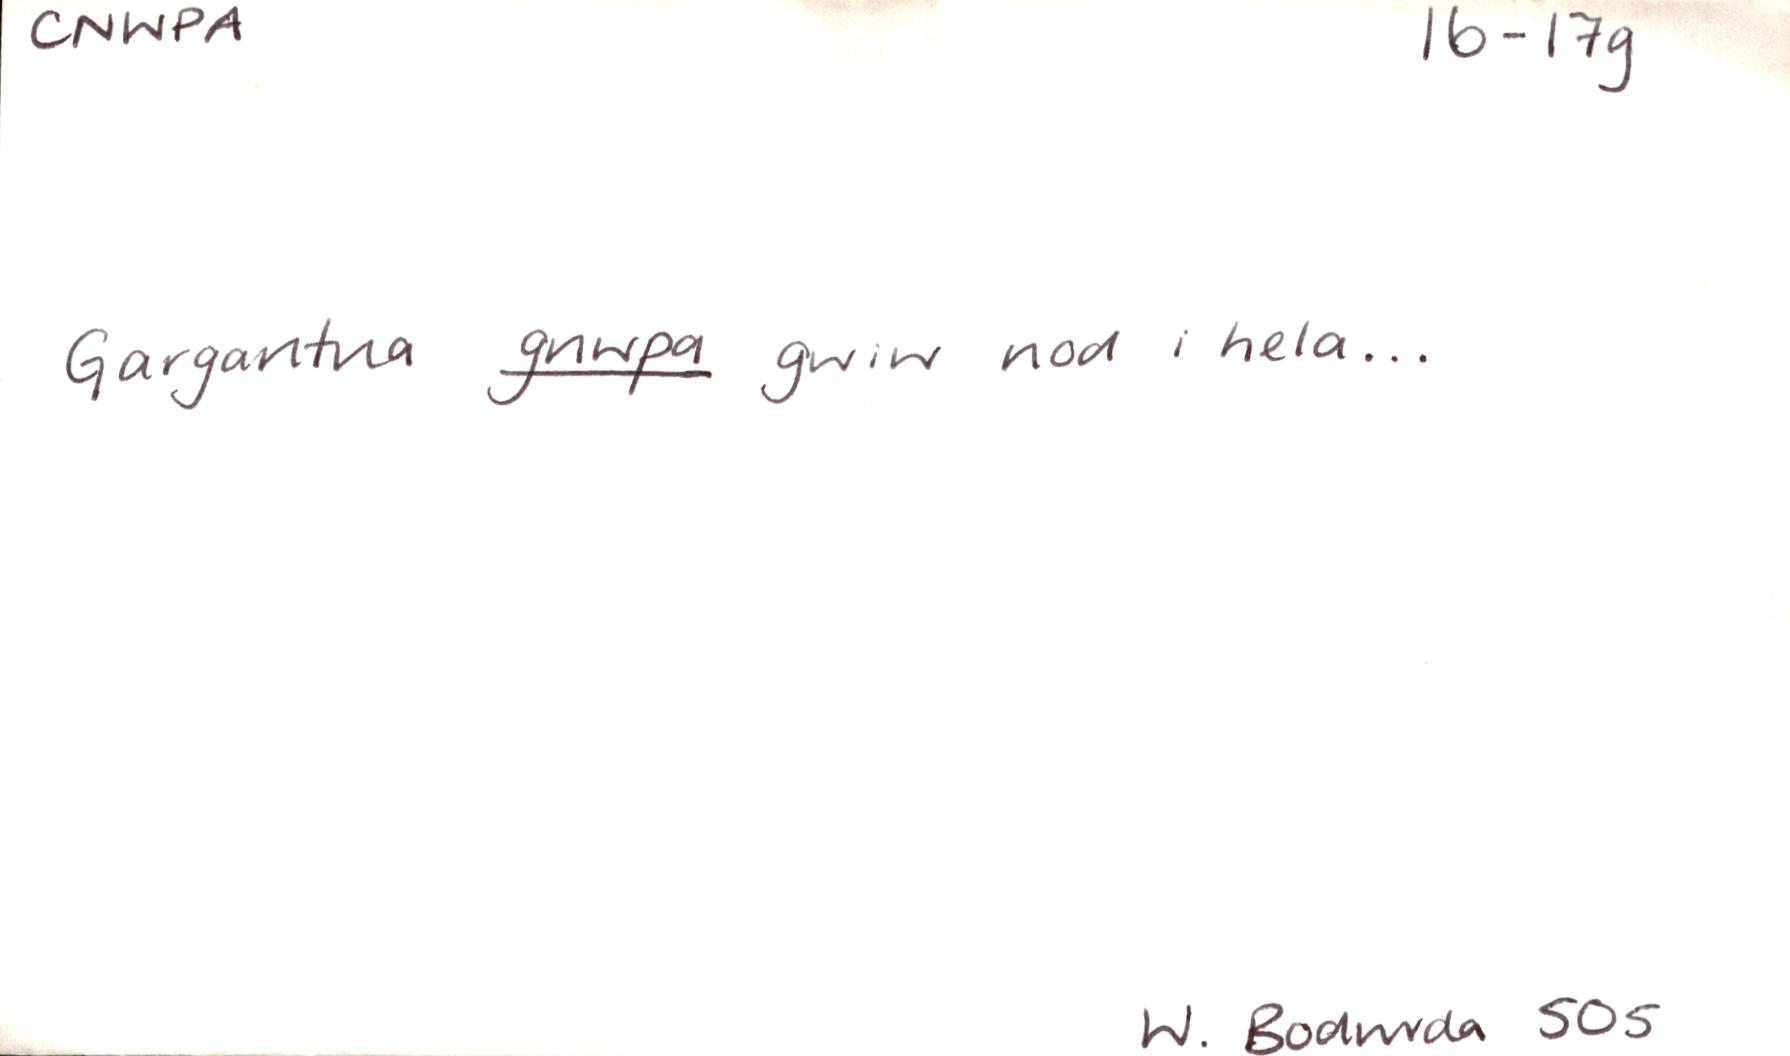 CNWPA 16-17g
Gargantua gnwpa gwiw nod i hela...
W. Bodwrda 505